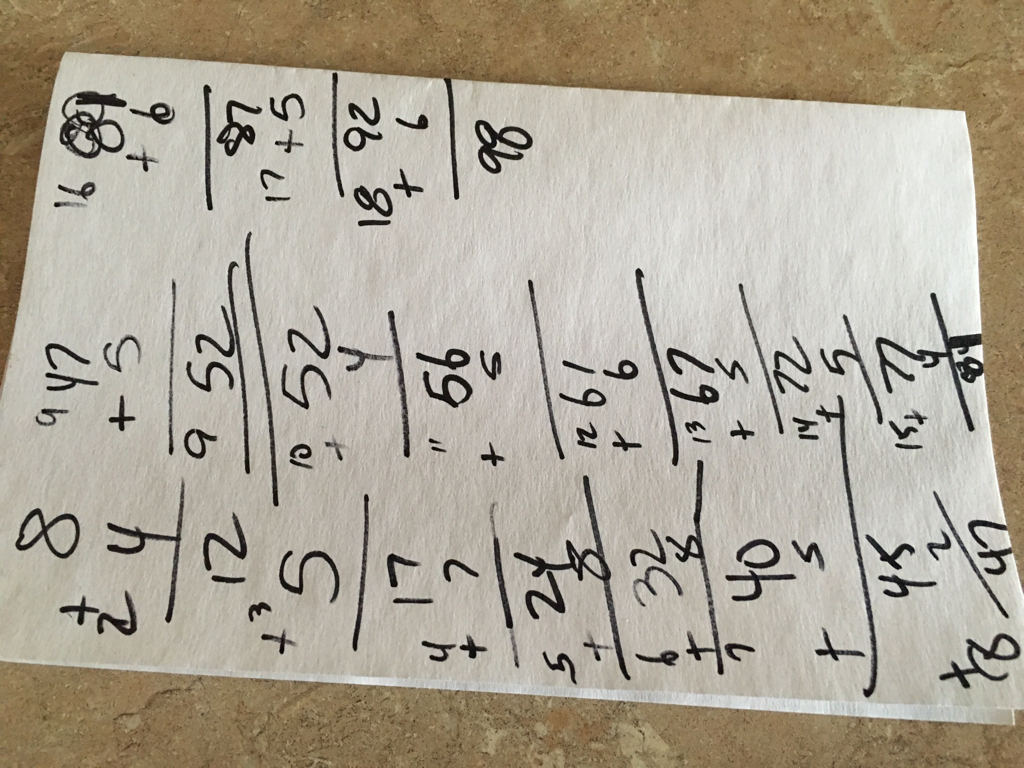 8
+
2 4
12
+3 5
17
4
+ 7
5 24
+ 8
6 32
+ 8
7 40
+ 5
45
+8 2
47
9 47
+ 5
9 52
10 52
+ 4
11 56
+ 5
12 61
+ 6
13 67
+ 5
14 72
+ 5
15 77
+ 4
81
16 81
+ 6
87
17 + 5
92
18 + 6
98